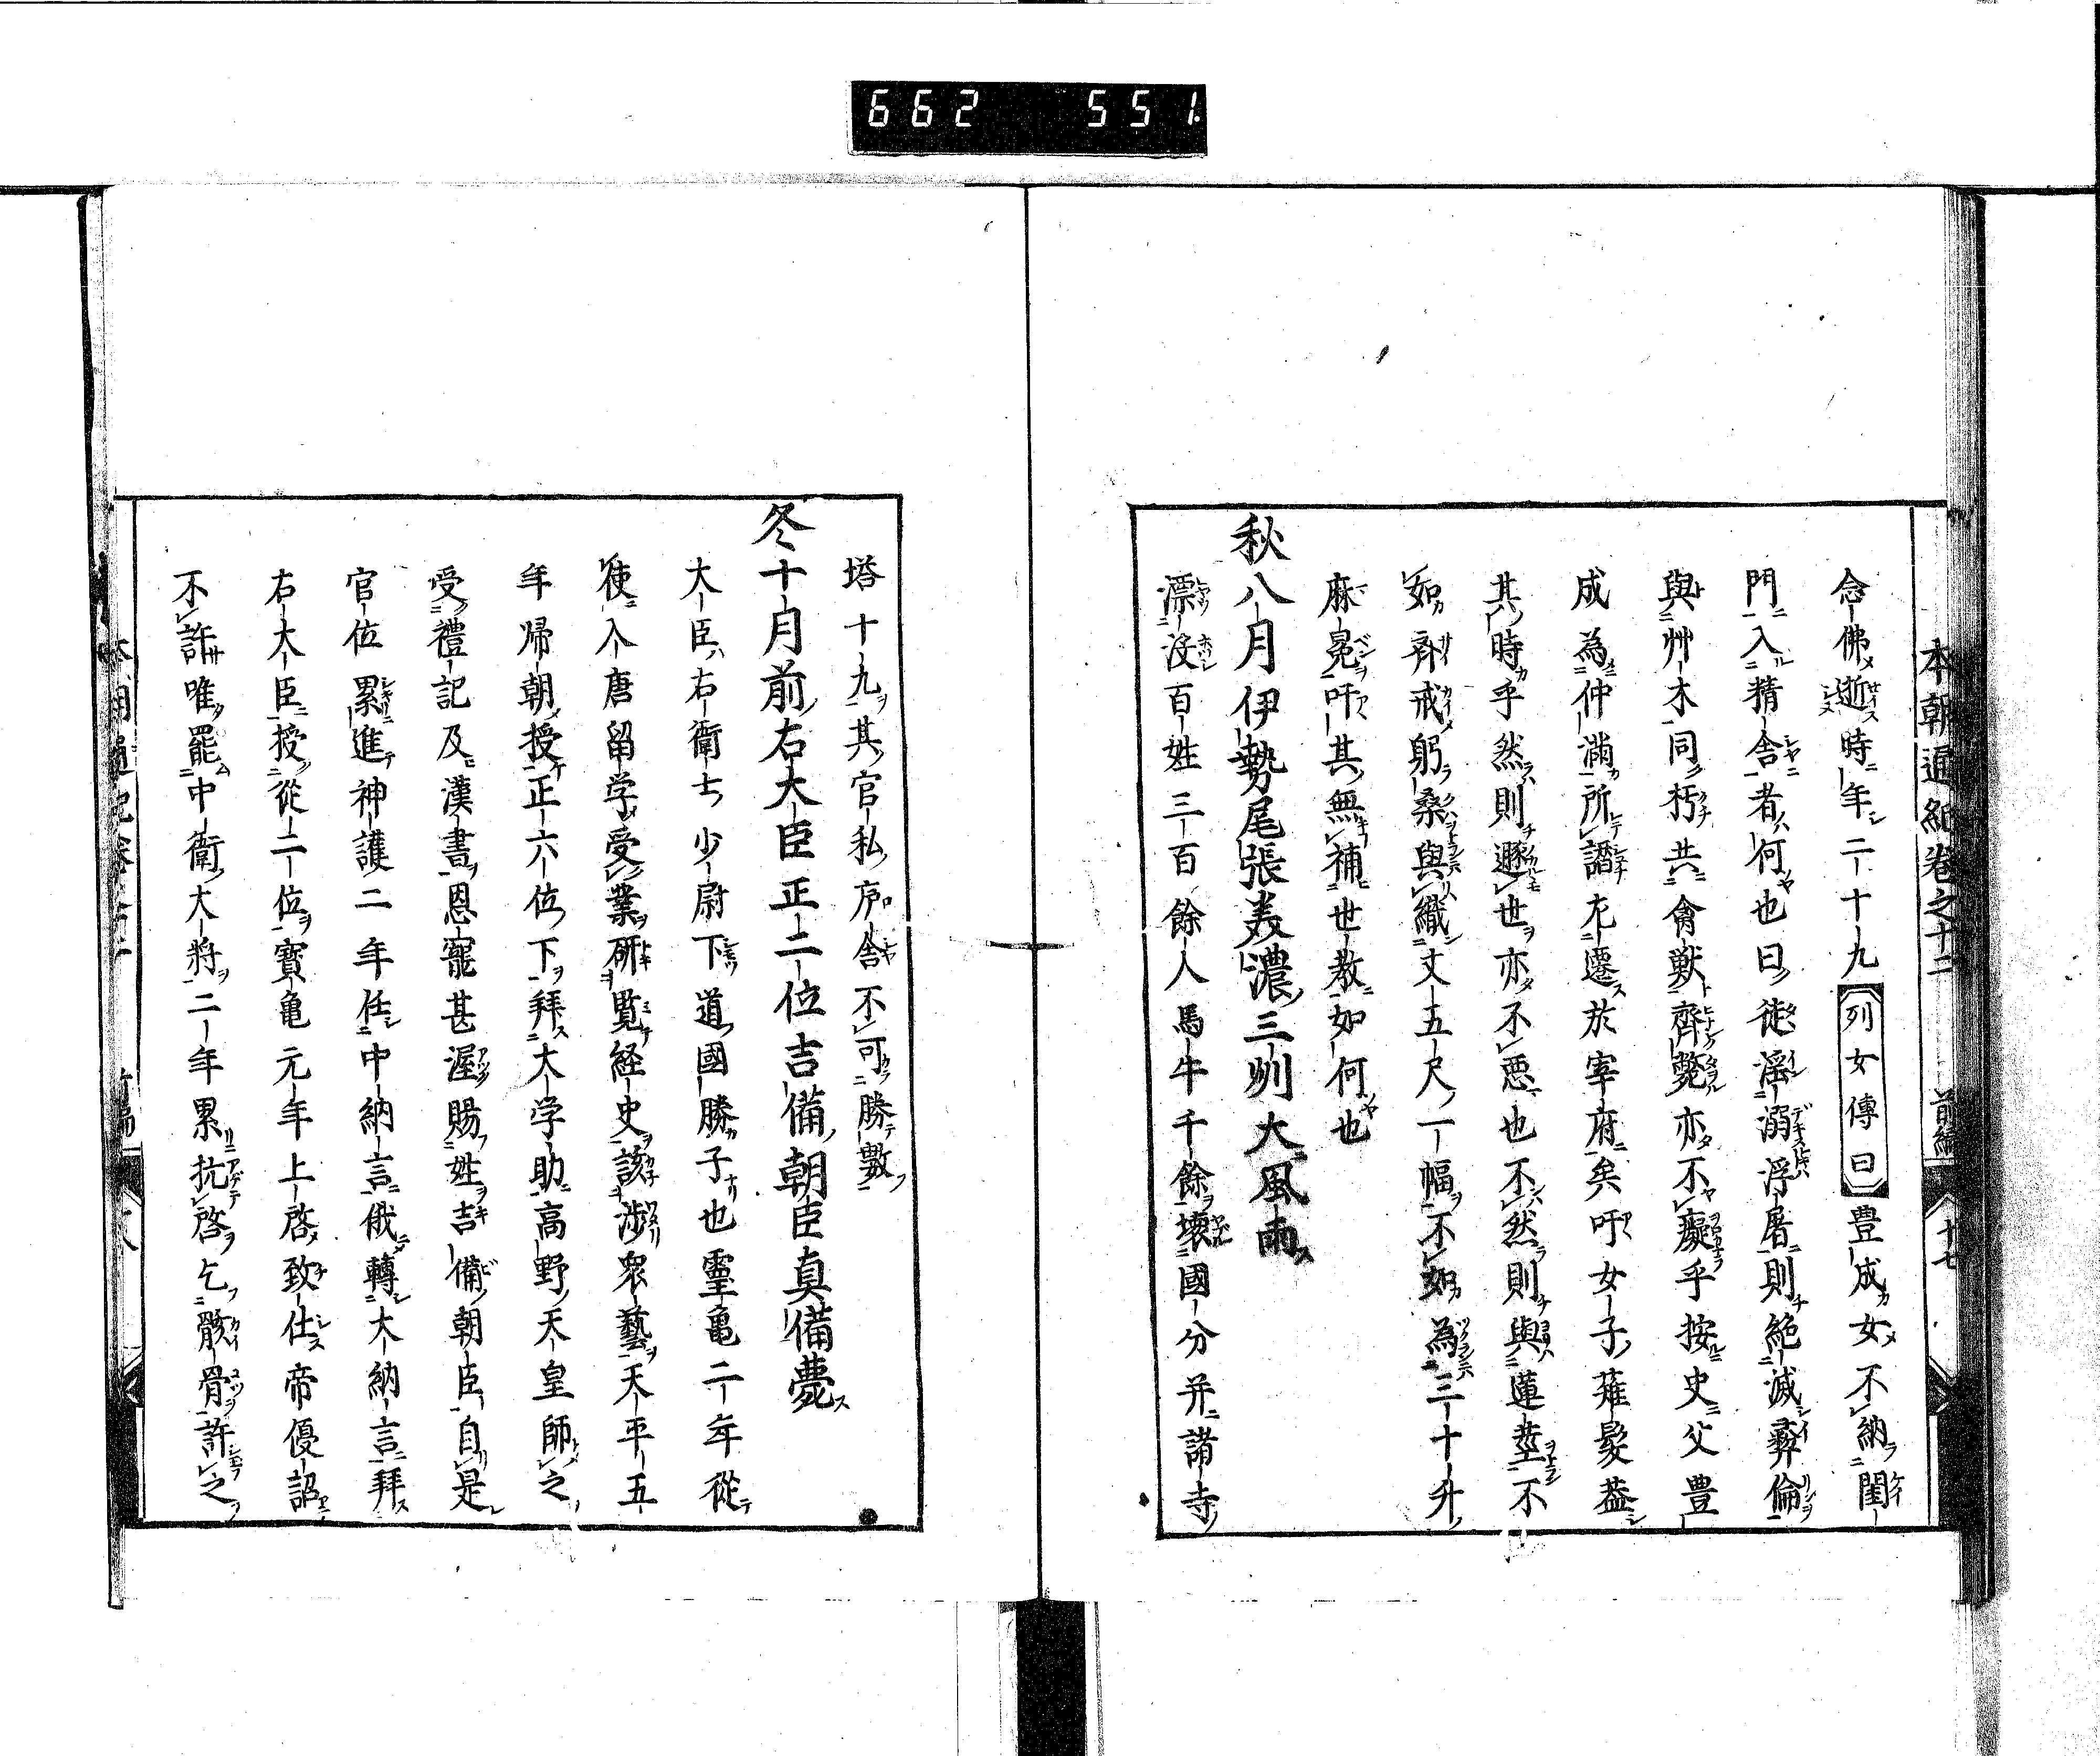 662 551
本朝通紀卷之十二 前編 十七
念佛逝時年二十九列女傳曰豊成女不納閨
門入精舎者何也曰徒滛溺浮屠則絶滅彝倫
與艸木同朽共禽獣齊斃亦不癡乎按史父豊
成為仲満所譖左遷於宰府矣吁女子薙髪葢
其時乎然則遯世亦不悪也不然則與蓮茎不
如齊戒躬桑與織丈五尺一幅不如為三十升
麻冕吁其無補世教如何也
秋八月伊勢尾張美濃三州大風雨
漂没百姓三百餘人馬牛千餘壊國分并諸寺
塔十九其官私庐舎不可勝數
冬十月前右大臣正二位吉備朝臣真備薨
大臣右衛士少尉下道國勝子也靈亀二年從
使入唐留学受業研覧経史該渉衆藝天平五
年帰朝授正六位下拜大学助高野天皇師之
受禮記及漢書恩寵甚渥賜姓吉備朝臣自是
官位累進神護二年任中納言俄轉大納言拜
右大臣授從二位寳亀元年上啓致仕帝優詔
不許唯罷中衛大將二年累抗啓乞骸骨許之